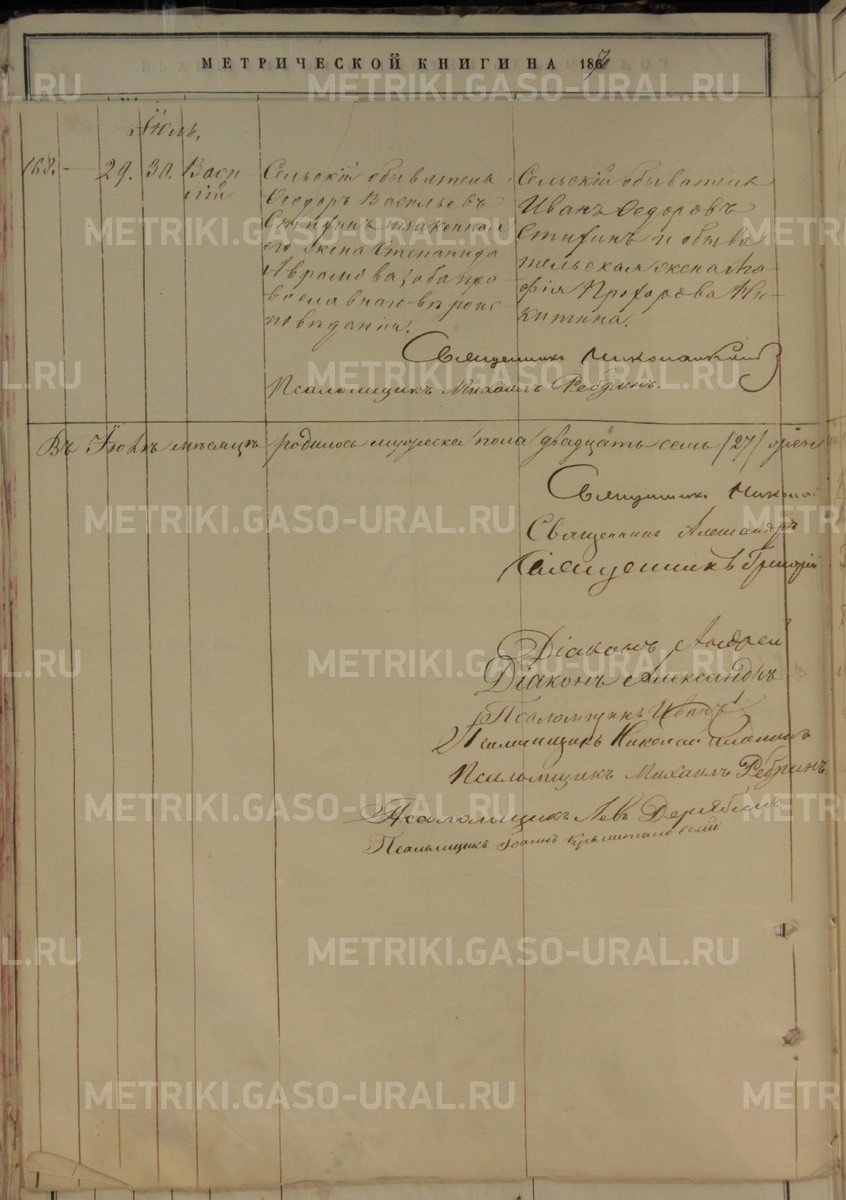 МЕТРИЧЕСКОЙ КНИГИ НА 1867
Іюль.
168. — 29. 30. Васи
лій
Сельскій обыватель
Ѳеодоръ Васильевъ
и законная
его жена Степанида
Аврамова, оба пра
вославнаго вѣроис
повѣданія.
Сельскій обыватель
Иванъ Ѳедоровъ
и обыва
тельская жена Ага
фія Прохорова Ни
китина.
Священникъ
Псаломщикъ Михаилъ Ребринъ.
Въ Іюлѣ мѣсяцѣ родилось мужеска пола двадцать семь /27/
Священникъ Николай
Священникъ Александръ
Священникъ Григорій
Діаконъ Андрей
Діаконъ Александръ
Псаломщикъ Иванъ
Псаломщикъ Николай
Псаломщикъ Михаилъ Ребринъ
Псаломщикъ Левъ Дерябинъ
Псаломщикъ Іоаннъ
METRIKI.GASO-URAL.RU